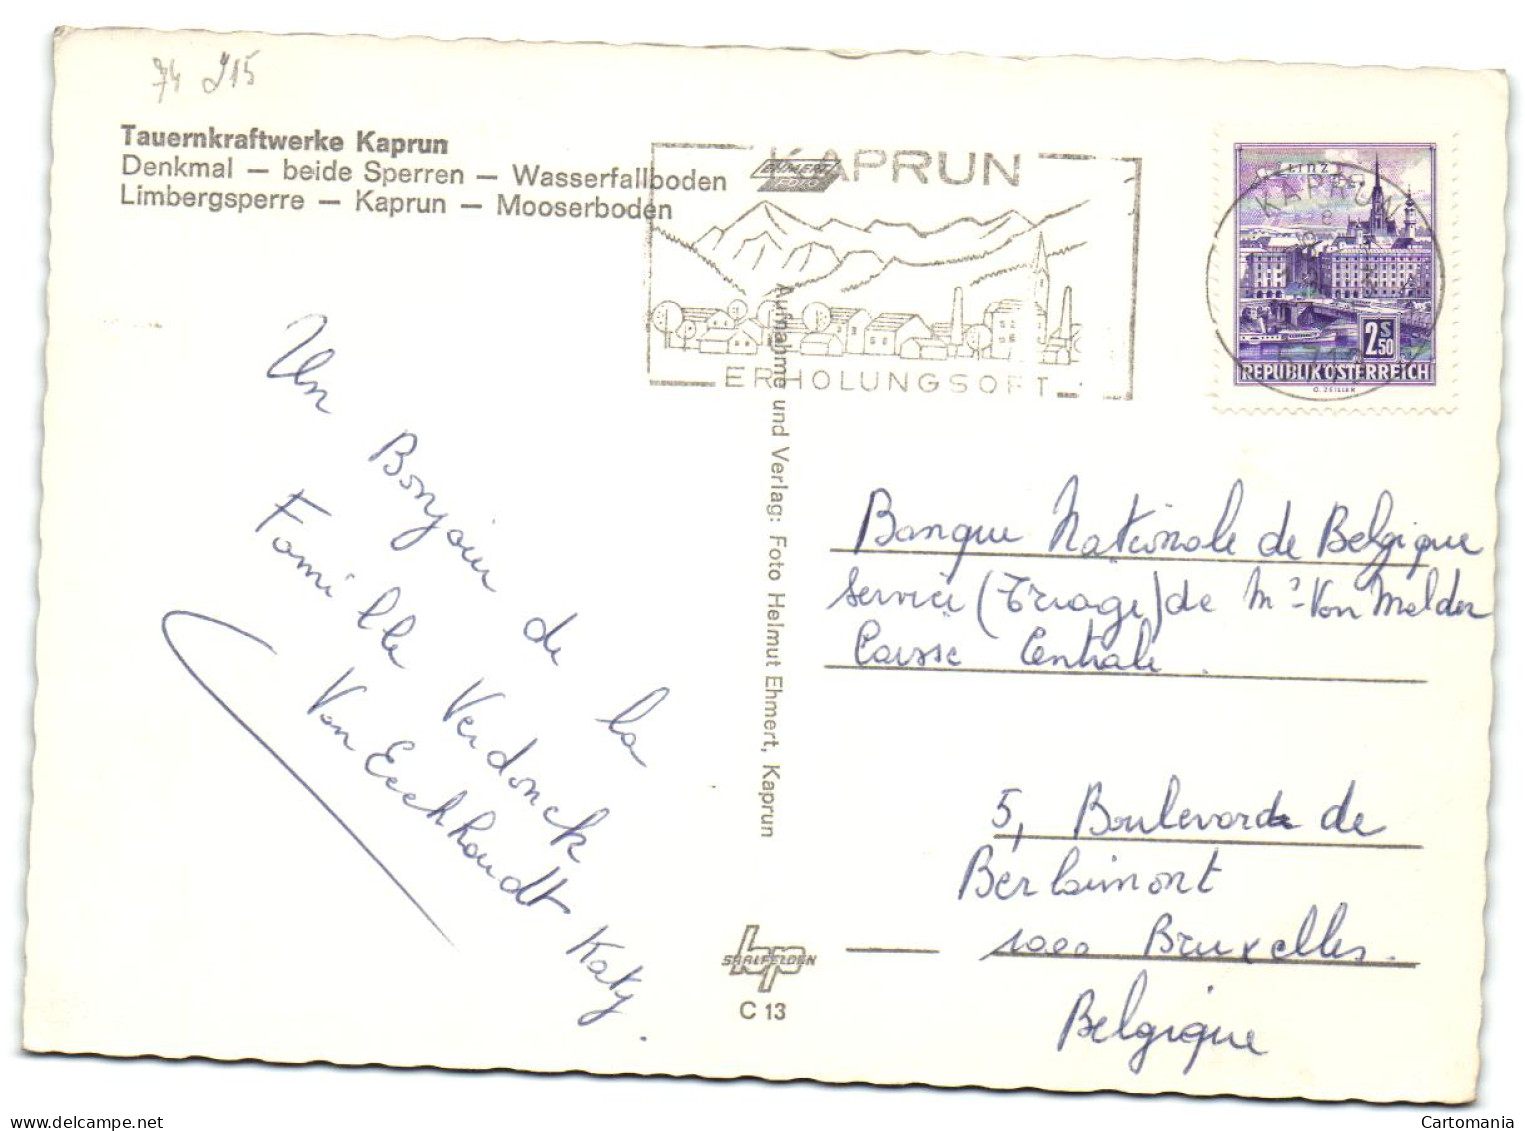 74 J15
Tauernkraftwerke Kaprun
Denkmal — beide Sperren — Wasserfallboden
Limbergsperre — Kaprun — Mooserboden
EHMERT
FOTO
KAPRUN
ERHOLUNGSORT
LINZ
KAPRUN
2 S 50
REPUBLIK ÖSTERREICH
O. ZEILLER
Un Bonjour de la
Famille Verdonck
Von Eeckhoudt Katy.
Aufnahme und Verlag: Foto Helmut Ehmert, Kaprun
Banque Nationale de Belgique
Service (Triage) de Mr Von Melder
Caisse Centrale.
5, Boulevard de
Berlaimont
1000 Bruxelles.
Belgique
SAALFELDEN
C 13
Cartomania